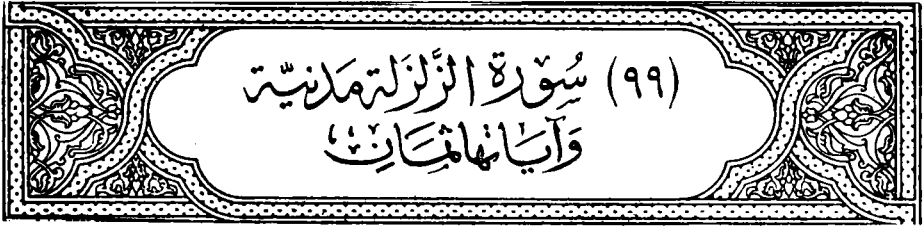 (٩٩) سُورَة الزَّلزَلة مَدَنيَّة
وَآيَاتها ثمَانِ